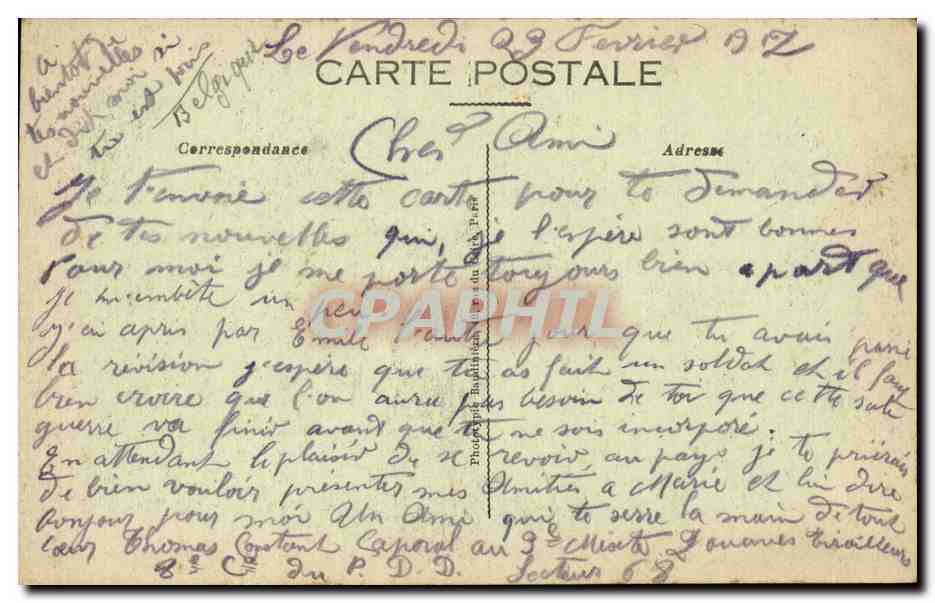 Le Vendredi 23 Fevrier 1917
CARTE POSTALE
a
bientot de
tes nouvelles
et dis moi si
tu est pour
Belgique
Correspondance
Adresse
Cher Ami
Je t'envoie cette carte pour te demander
de tes nouvelles qui, je l'espère sont bonnes
Pour moi je me porte toujours bien apart que
je m'embète un peu
j'ai apris par Emile l'autre jour que tu avais passé
la révision j'espère que tu as fait un soldat et il faut
bien croire que l'on aura pas besoin de toi que cette sale
guerre va finir avant que tu ne sois incorporé.
En attendant le plaisir de se revoir au pays je te prierais
de bien vouloir présenter mes Amitiés a Marie et lui dire
bonjour pour moi Un Ami qui te serre la main de tout
coeur Thomas Constant Caporal au 9e Mixte Douanes Tirailleurs
8e Cie du P.D.D. Secteur 68
CPAPHIL
Phototypie Baudinière Paris